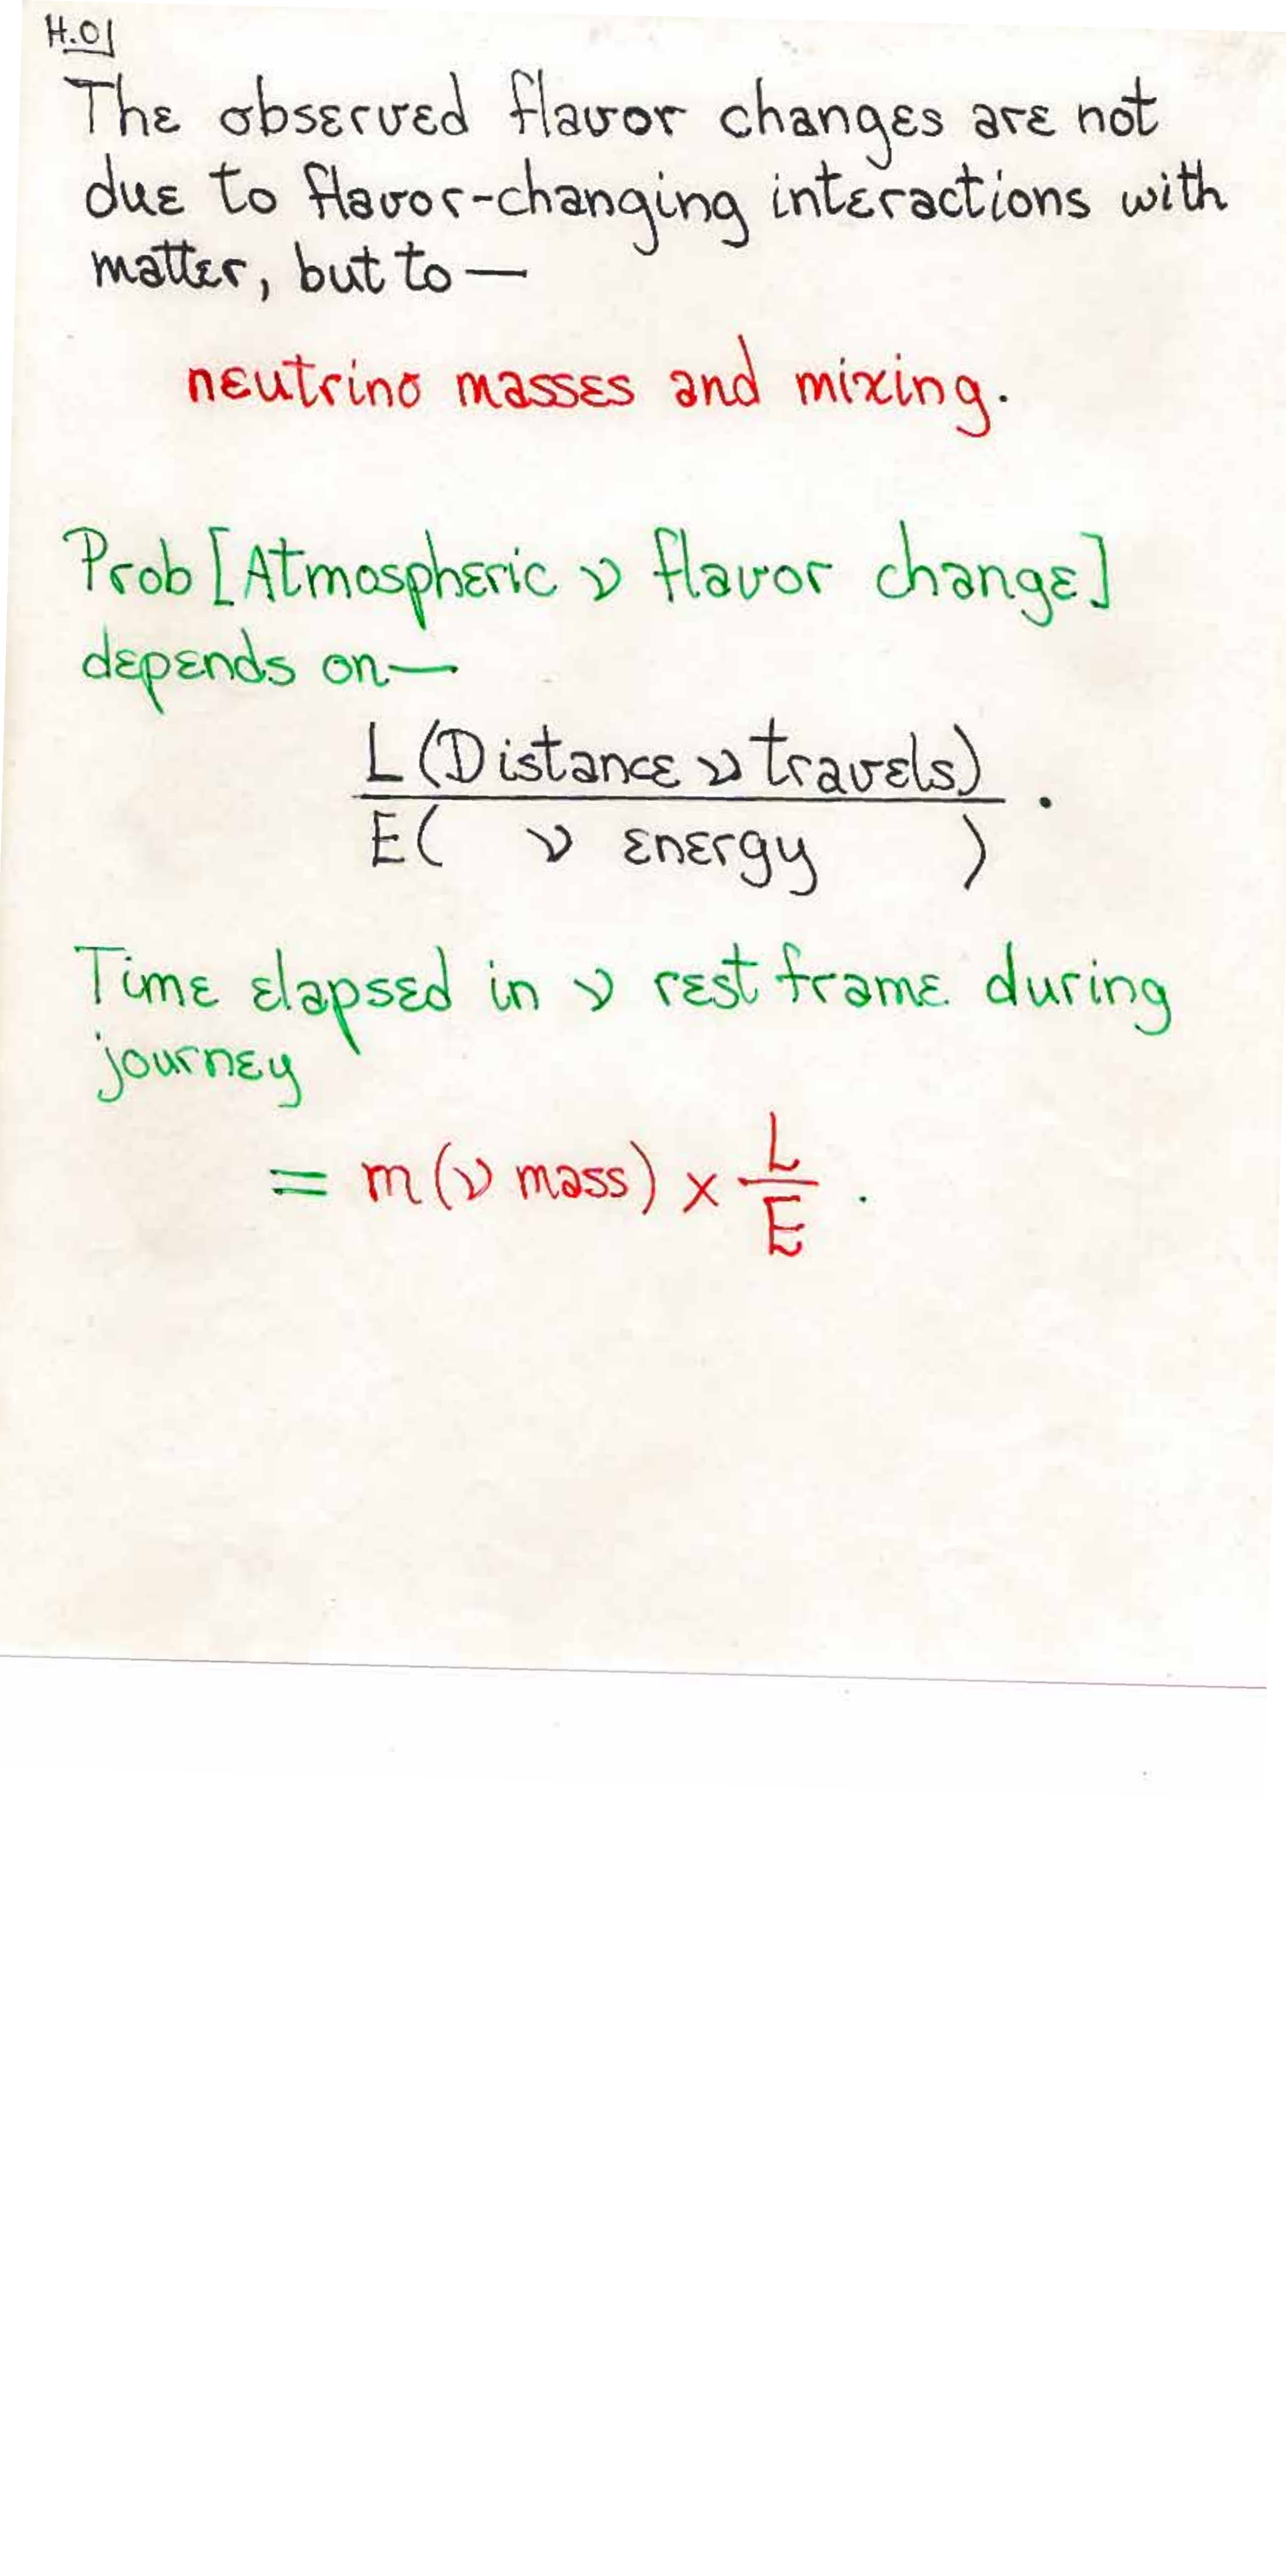 H.01
The observed flavor changes are not
due to flavor-changing interactions with
matter, but to —
neutrino masses and mixing.
Prob [Atmospheric ν flavor change]
depends on —
L (Distance ν travels)
E ( ν energy ) .
Time elapsed in ν rest frame during
journey
= m (ν mass) × L/E .